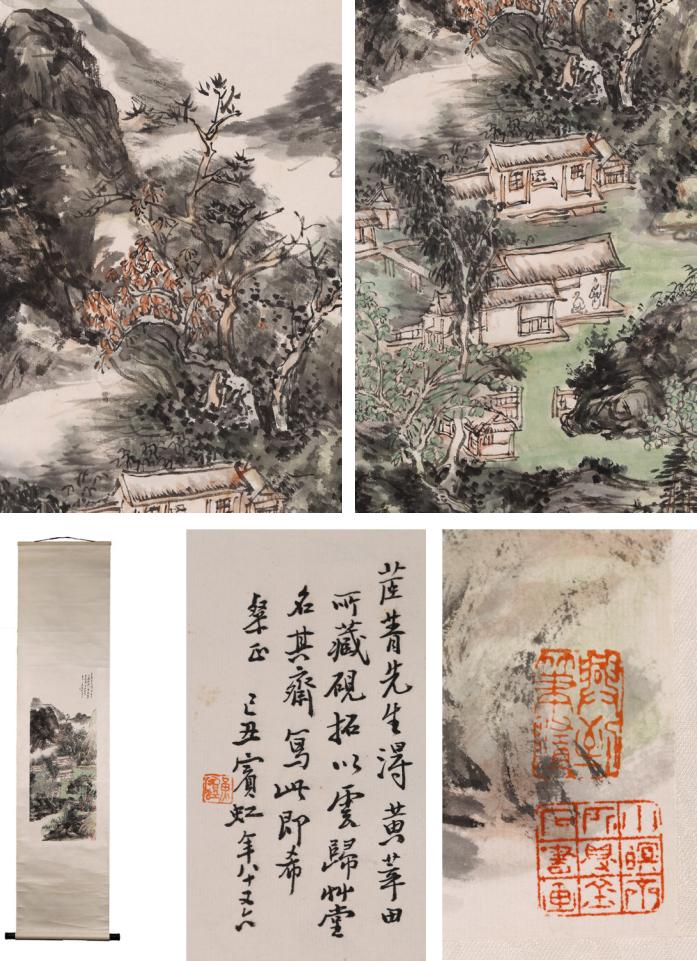 茝菁先生淂黃莘田
所藏硯拓以雲歸艸堂
名其齋寫此即希
粲正 己丑賓虹年八十又六